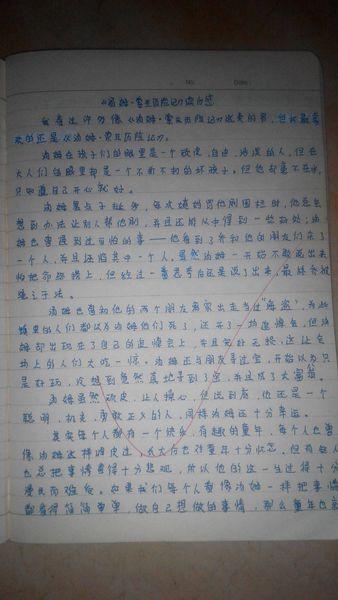 No:
Date:
《汤姆·索亚历险记》读后感
我看过许多像《汤姆·索亚历险记》这类的书,但我最喜
欢的还是《汤姆·索亚历险记》。
汤姆在孩子们的眼里是一个顽皮,自由,活泼的人,但在
大人们的眼里却是一个不折不扣的坏孩子。但他却毫不在乎,
只知道自己开心就好。
汤姆鬼点子挺多,每次姨妈罚他刷围栏时,他总会
想到办法让别人帮他刷,并且还能从中得到一些好处;汤
姆也曾遇到过可怕的事——他看到乔和他的朋友们杀了
一个人,并且还陷其中一个人,虽然汤姆一开始不敢说出去
怕把命给搭上,但经过一番思考后还是说了出来,最终会被
绳之于法。
汤姆也曾和他的两个朋友离家出走当过"海盗",为此
镇里的人们都以为汤姆他们死了,还开了一场追悼会,但汤
姆却出现在了自己的追悼会上,并且完好无损,这让会
场上的人们大吃一惊。汤姆还与朋友寻过宝,开始以为只
是好玩,没想到竟然真地寻到了宝,并且成了大富翁。
汤姆虽然顽皮,让人操心,但说到底,他还是一个
聪明,机灵,勇敢正义的人,同样汤姆还十分幸运。
其实每个人都有一个快乐,有趣的童年,每个人也曾
像汤姆这样顽皮过,长大后也许
十分怀念,但有些人
也总把事情看得十分悲观,所以他的这一生过得十分
漫长而难后。如果我们每个人都像汤姆一样把事情
都看得简简单单,做自己想做的事情,那么童年也就